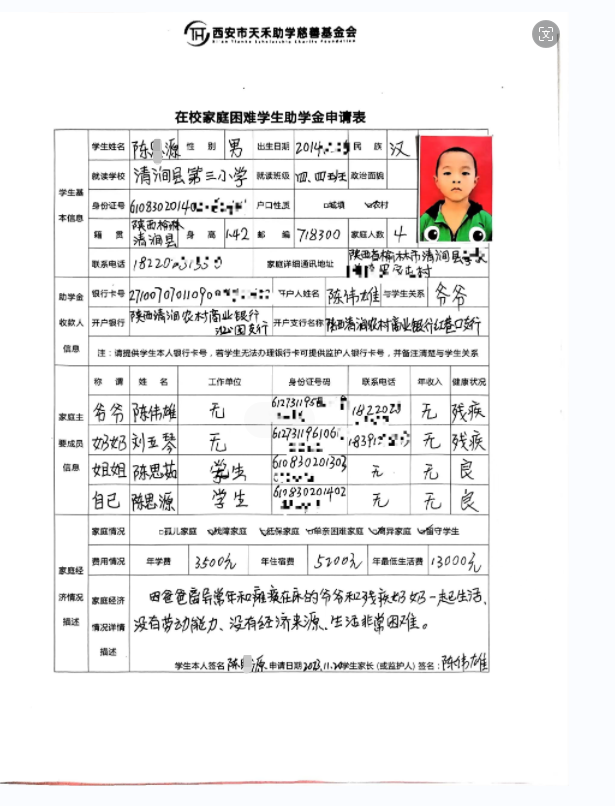 西安市天禾助学慈善基金会
Xi'an Tianhe Scholarship Charity Foundation
在校家庭困难学生助学金申请表
学生基本信息
学生姓名 陈 源 性别 男 出生日期 2014 民族 汉
就读学校 清涧县第三小学 就读班级 四、四班 政治面貌
身份证号 61083020140 户口性质 □城镇 ☑农村
籍贯 陕西榆林清涧县 身高 142 邮编 718300 家庭人数 4
联系电话 18220 家庭详细通讯地址 陕西省榆林市清涧县 村
助学金收款人信息
银行卡号 2710070701090 开户人姓名 陈伟雄 与学生关系 爷爷
开户银行 陕西清涧农村商业银行 支行 开户支行名称 陕西清涧农村商业银行 支行
注:请提供学生本人银行卡号,若学生无法办理银行卡可提供监护人银行卡号,并备注清楚与学生关系
家庭主要成员信息
称谓 姓名 工作单位 身份证号码 联系电话 年收入 健康状况
爷爷 陈伟雄 无 612731195 1822020 无 残疾
奶奶 刘玉琴 无 6127311961061 18391 无 残疾
姐姐 陈思茹 学生 610830201303 无 无 良
自己 陈思源 学生 610830201402 无 无 良
家庭经济情况描述
家庭情况 □孤儿家庭 ☑残障家庭 ☑低保家庭 ☑单亲困难家庭 ☑离异家庭 ☑留守学生
费用情况 年学费 3500元 年住宿费 5200元 年最低生活费 13000元
家庭经济情况详情描述
因爸爸离异常年和瘫痪在床的爷爷和残疾奶奶一起生活、
没有劳动能力、没有经济来源、生活非常困难。
学生本人签名 陈 源 申请日期 2023.11.20 学生家长(或监护人)签名:陈伟雄